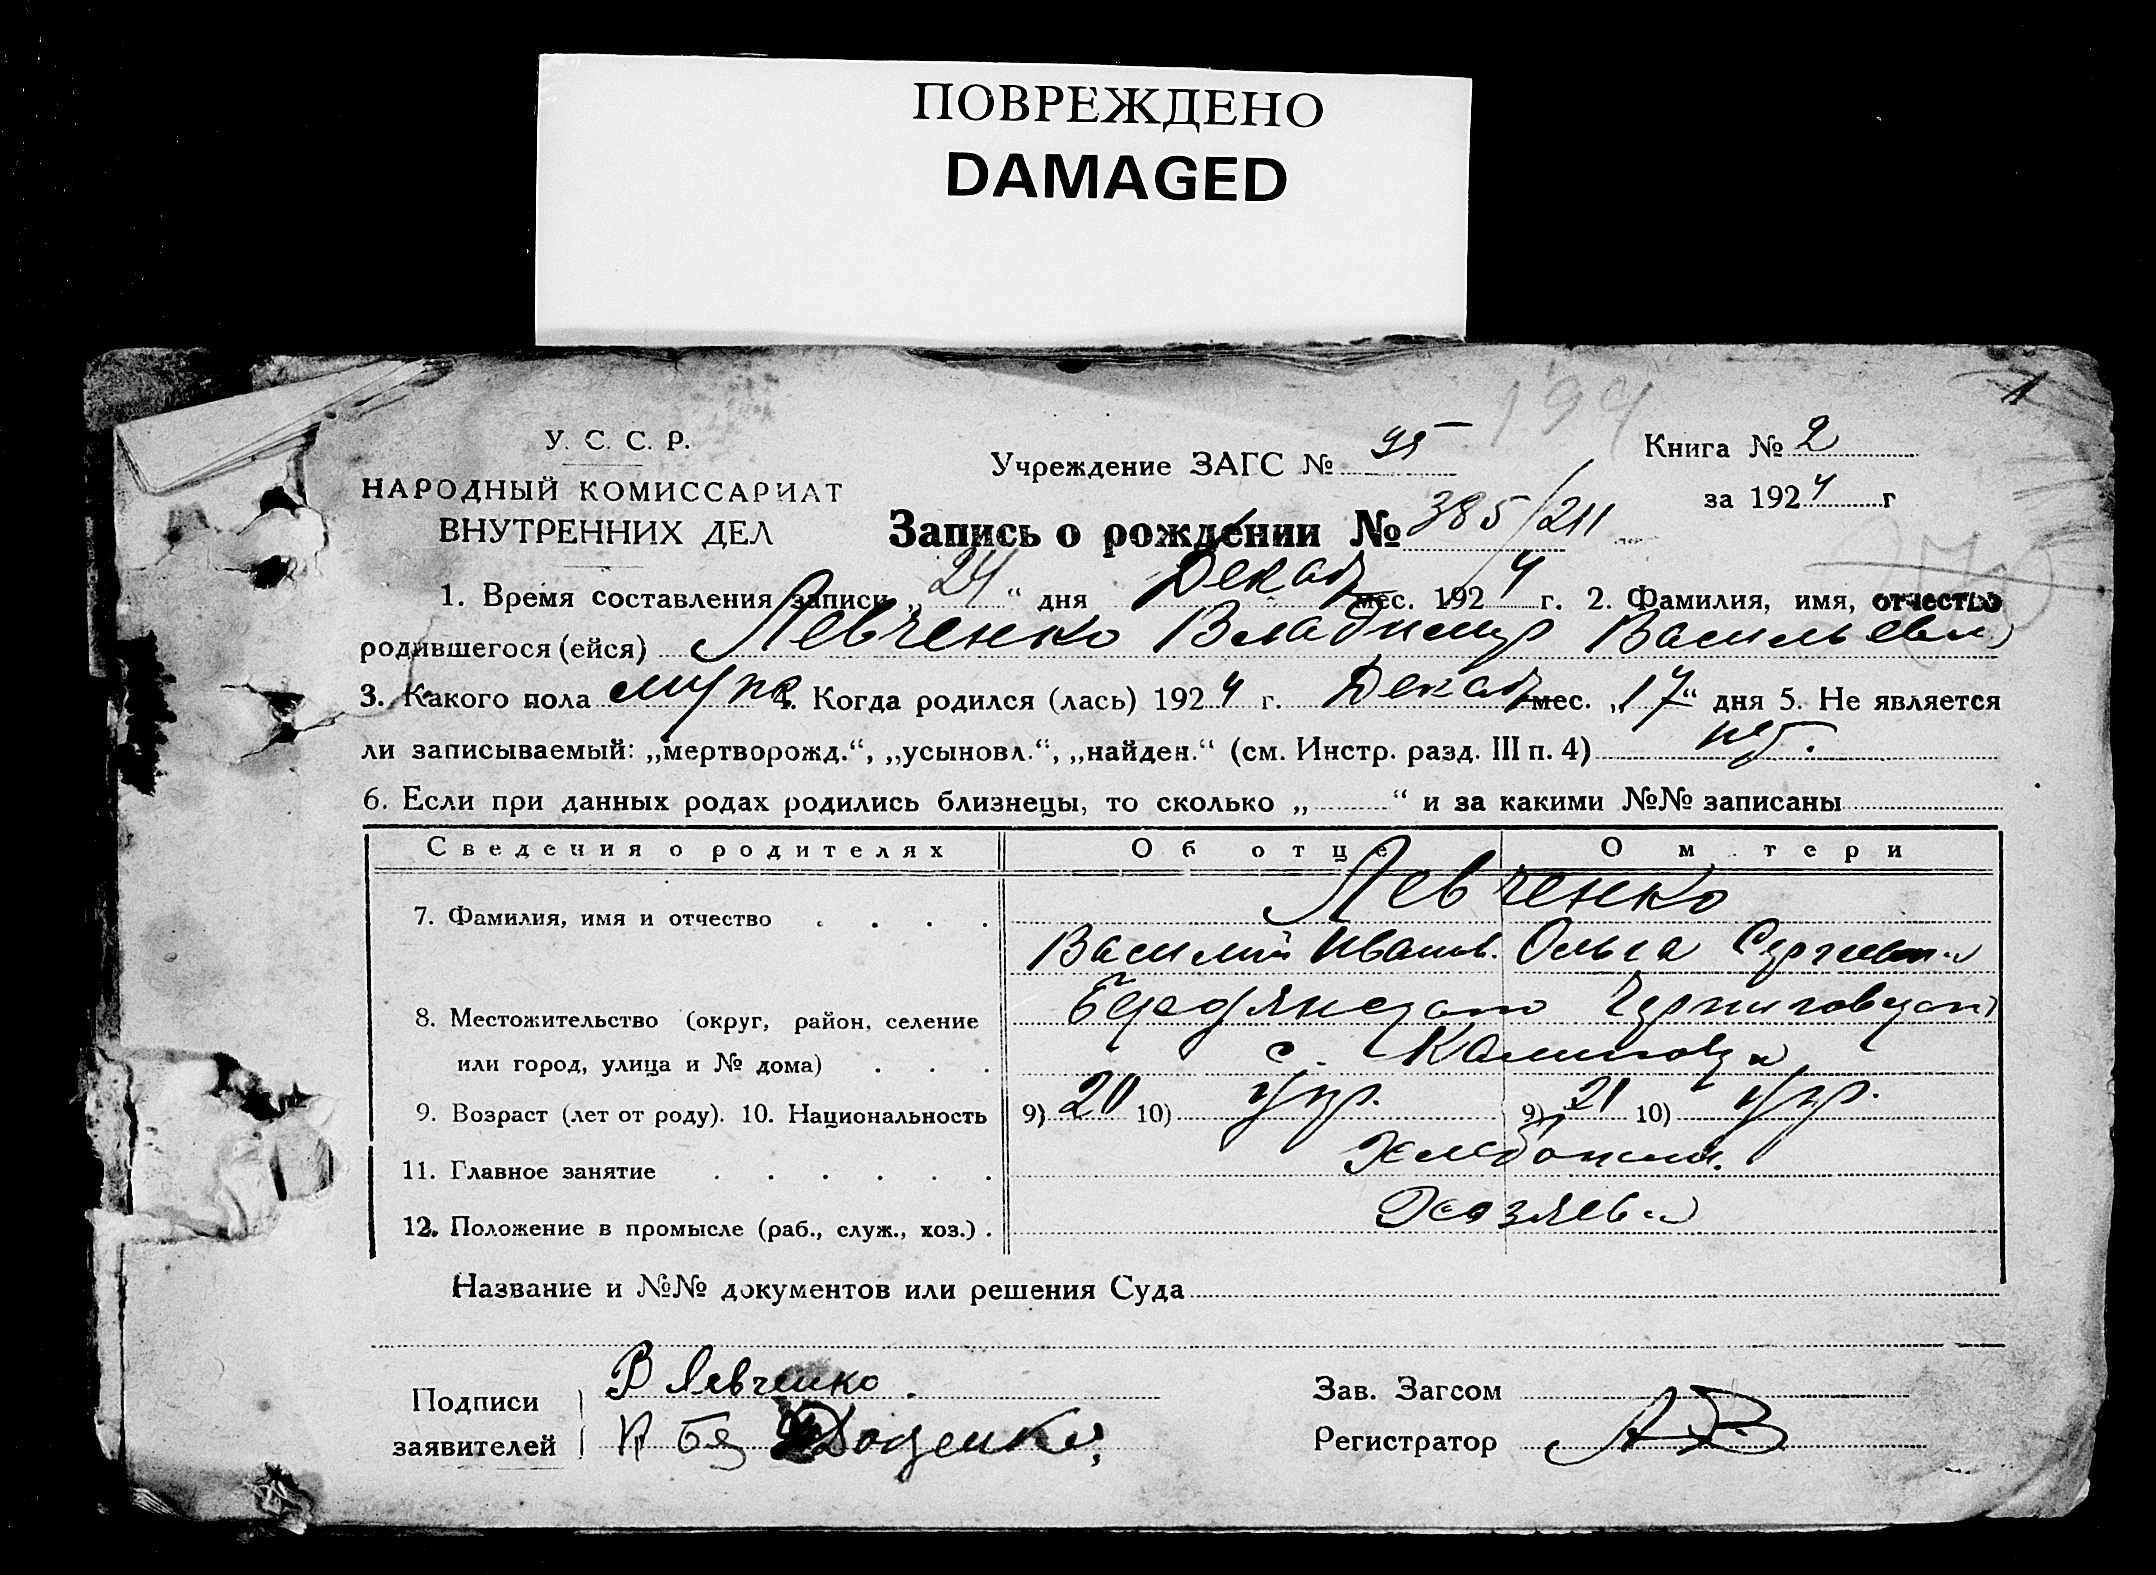 ПОВРЕЖДЕНО
DAMAGED
194
1
У. С. С. Р.
НАРОДНЫЙ КОМИССАРИАТ
ВНУТРЕННИХ ДЕЛ
Учреждение ЗАГС № 95
Книга № 2
за 1924 г
Запись о рождении № 385/211
1. Время составления записи „24“ дня Декаб мес. 1924 г. 2. Фамилия, имя, отчество
родившегося (ейся) Левченко Владимир Васильевич
3. Какого пола муж 4. Когда родился (лась) 1924 г. Декаб мес. „17“ дня 5. Не является
ли записываемый: „мертворожд.“, „усыновл.“, „найден.“ (см. Инстр. разд. III п. 4) нет.
6. Если при данных родах родились близнецы, то сколько „ “ и за какими №№ записаны
Сведения о родителях Об отце О м тери
7. Фамилия, имя и отчество Левченко
Василий Иванов. Ольга Сергеевна
8. Местожительство (округ, район, селение Бердянского Черниговской
или город, улица и № дома) с. Калиновка
9. Возраст (лет от роду). 10. Национальность 9) 20 10) укр. 9) 21 10) укр.
11. Главное занятие Хлебопаш.
12. Положение в промысле (раб., служ., хоз.) Хозяева
Название и №№ документов или решения Суда
Подписи В Левченко.
заявителей Доценко
Зав. Загсом
Регистратор